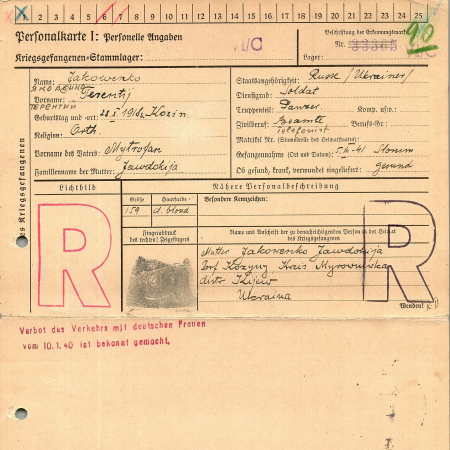 X X 1 2 3 4 5 6 7 8 9 10 11 12 13 14 15 16 17 18 19 20 21 22 23 24 25
Personalkarte I: Personelle Angaben
Beschriftung der Erkennungsmarke
90
Kriegsgefangenen-Stammlager: VI/C
Nr. 33365
Lager: VI/C
des Kriegsgefangenen
Name: Jakowenko
ЯКОВЕНКО
Vorname: Terentij
ТЕРЕНТИЙ
Geburtstag und -ort: 1918, Kozin
Religion: Orth.
Vorname des Vaters: Mytrofan
Familienname der Mutter: Jawdokija
Staatsangehörigkeit: Russe / (Ukrainer)
Dienstgrad: Soldat
Truppenteil: Panzer Komp. usw.:
Zivilberuf: Beamte Berufs-Gr.:
Telefonist
Matrikel Nr. (Stammrolle des Heimatstaates):
Gefangennahme (Ort und Datum): 41 Slonim
Ob gesund, krank, verwundet eingeliefert: gesund
Lichtbild
Nähere Personalbeschreibung
Größe Haarfarbe Besondere Kennzeichen:
159 d. blond
R
Fingerabdruck
des rechten! Zeigefingers
Name und Anschrift der zu benachrichtigenden Person in der Heimat
des Kriegsgefangenen
Mutter Jakowenko Jawdokija
Dorf Kozyny, Kreis Myrowuwska
distr. Kijew
Ukraina
R
Wenden!
Verbot des Verkehrs mit deutschen Frauen
vom 10.1.40 ist bekannt gemacht.